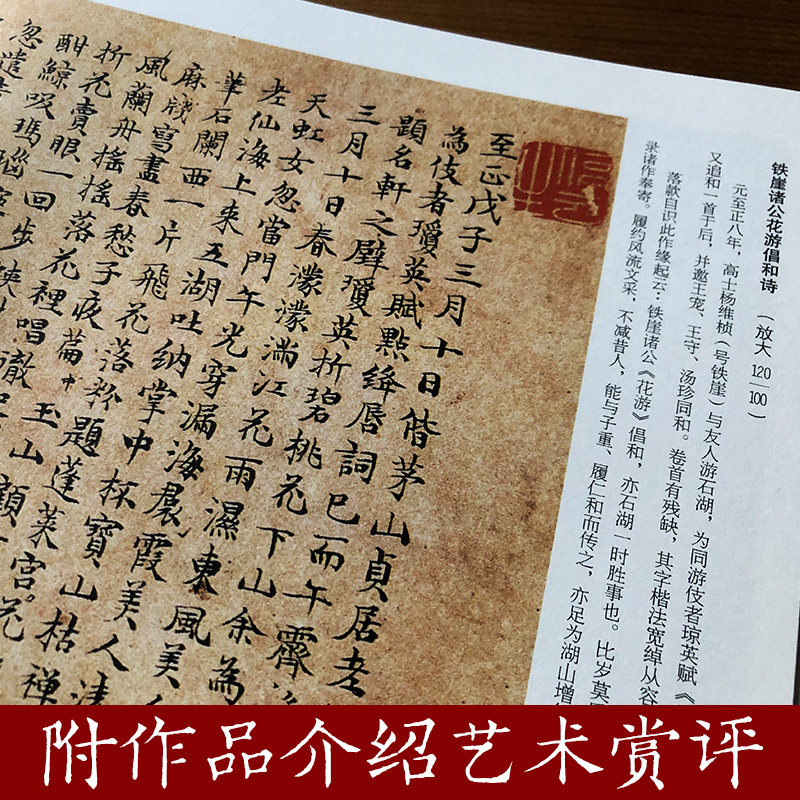 铁崖诸公花游倡和诗 (放大 120/100)
元至正八年,高士杨维桢(号铁崖)与友人游石湖,为同游伎者琼英赋《
又追和一首于后,并邀王宠、王守、汤珍同和。卷首有残缺,其字楷法宽绰从容
落款自识此作缘起云:铁崖诸公《花游》倡和,亦石湖一时胜事也。比岁莫
录诸作奉寄。履约风流文采,不减昔人,能与子重、履仁和而传之,亦足为湖山增
至正戊子三月十日偕茅山貞居老
為伎者瓊英賦點絳唇詞已而午霽
題名軒之壁瓊英折碧桃花下山余為
三月十日春濛濛滿江花雨濕東風美
天虹女忽當門午光穿漏海霞美人
老仙海上来五湖吐納掌中杯寶山枯禪
華石闌西一片飛花落粉題蓬萊宮花
麻牋寫盡春愁子夜篇中
風蘭舟摇摇落花裡唱徹玉山
折花賣眼一回步
酣鯨吸瑪瑙
忽遣
附作品介绍艺术赏评